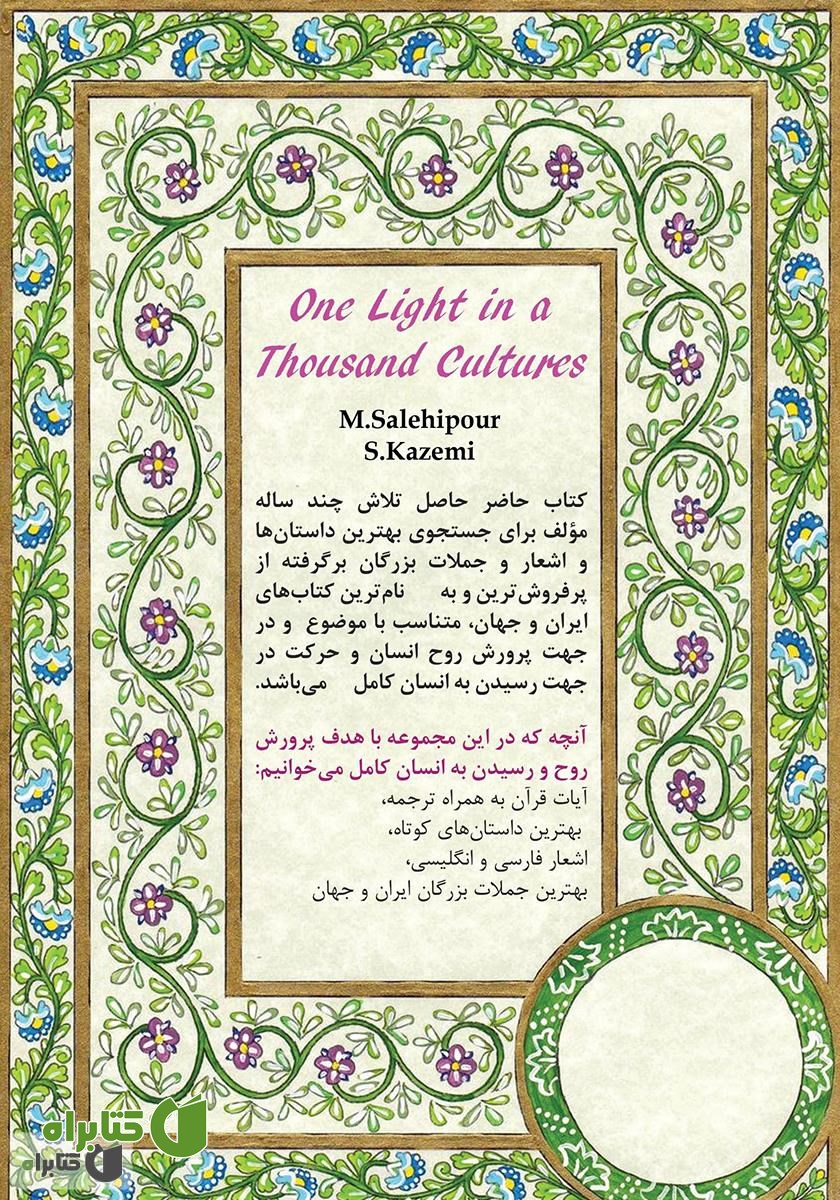 One Light in a
Thousand Cultures
M.Salehipour
S.Kazemi
کتاب حاضر حاصل تلاش چند ساله
مؤلف برای جستجوی بهترین داستان‌ها
و اشعار و جملات بزرگان برگرفته از
پرفروش‌ترین و به نام‌ترین کتاب‌های
ایران و جهان، متناسب با موضوع و در
جهت پرورش روح انسان و حرکت در
جهت رسیدن به انسان کامل می‌باشد.
آنچه که در این مجموعه با هدف پرورش
روح و رسیدن به انسان کامل می‌خوانیم:
آیات قرآن به همراه ترجمه،
بهترین داستان‌های کوتاه،
اشعار فارسی و انگلیسی،
بهترین جملات بزرگان ایران و جهان
کتابراه
کتابراه